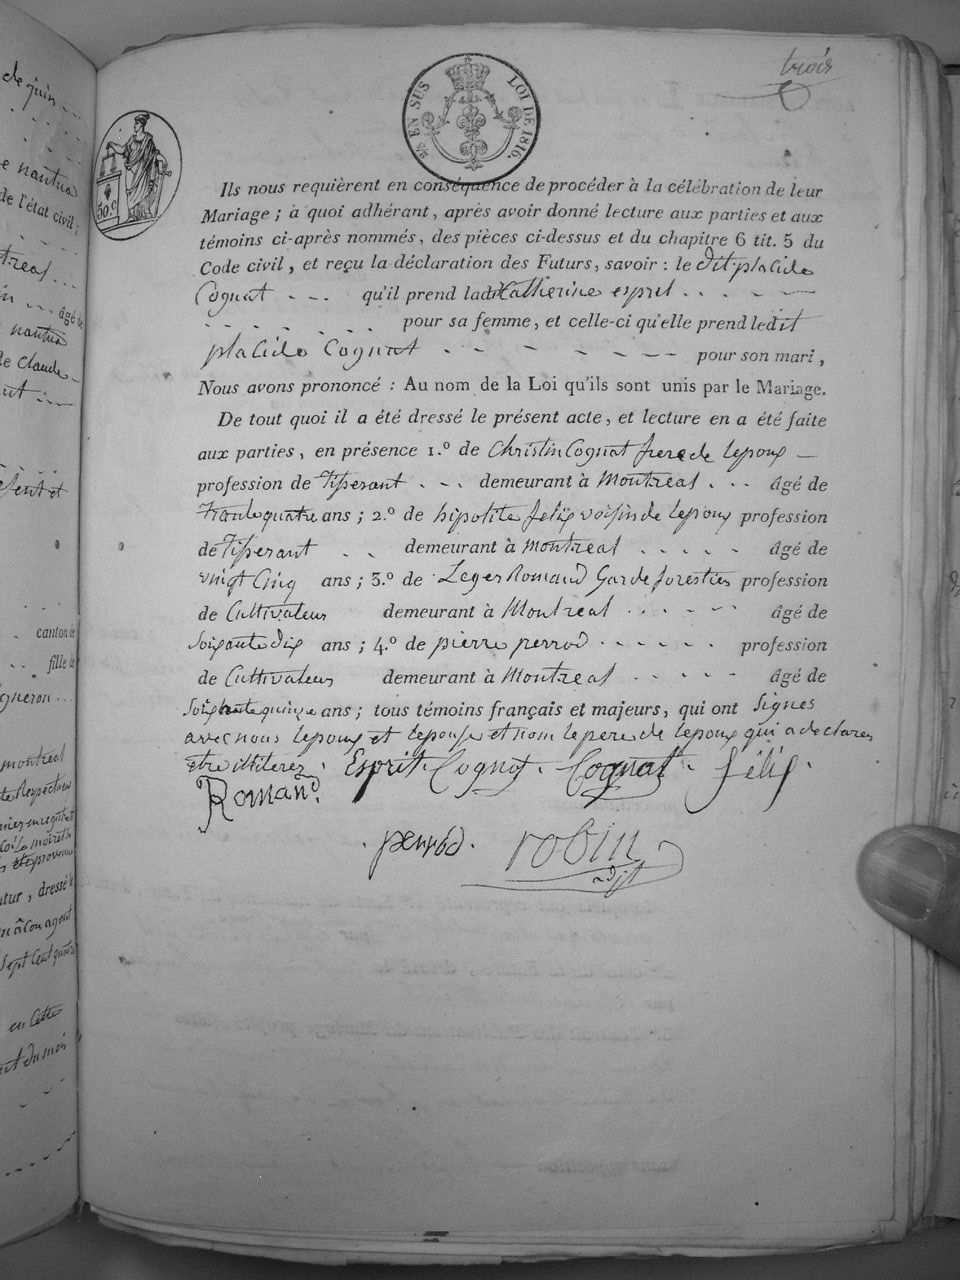 de juin
e nantua
de l'état civil ;
treal
âgé de
nantua
de Claude
canton de
fille de
gneron
montreal
utur, dressé
Sept Cent quatre
en Cette
du mois
trois
EN SUS LOI DE 1816.
50.c
Ils nous requièrent en conséquence de procéder à la célébration de leur
Mariage ; à quoi adhérant, après avoir donné lecture aux parties et aux
témoins ci-après nommés, des pièces ci-dessus et du chapitre 6 tit. 5 du
Code civil, et reçu la déclaration des Futurs, savoir : le dit placide
Cognat - - - qu'il prend ladite Catherine esprit
pour sa femme, et celle-ci qu'elle prend ledit
placide Cognat - - - - - - - pour son mari,
Nous avons prononcé : Au nom de la Loi qu'ils sont unis par le Mariage.
De tout quoi il a été dressé le présent acte, et lecture en a été faite
aux parties, en présence 1.º de Christin Cognat frere de lepoux
profession de Tisserant . - . demeurant à Montreal . . . âgé de
Trante quatre ans ; 2.º de hipolite felix voisin de lepoux profession
de Tisserant . . demeurant à montreal . . . . . âgé de
vingt Cinq ans ; 3.º de Leger Romand Garde forestier profession
de Cultivateur demeurant à Montreal . . . . . . âgé de
Soixante dix ans ; 4.º de pierre perrod . . . . . . profession
de Cultivateur demeurant à Montreal . . . . . âgé de
quinze ans ; tous témoins français et majeurs, qui ont Signés
avec nous lepoux et lepouse et nom le pere de lepoux qui a declarez
etre illiterez. Esprit. Cognat. Cognat. félix.
Romand.
. perrod. robin
adjt